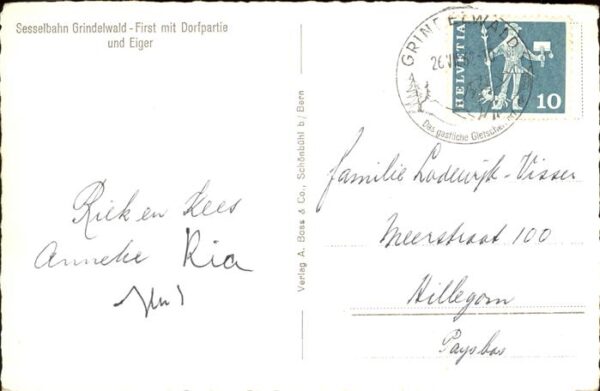 Sesselbahn Grindelwald - First mit Dorfpartie
und Eiger
GRINDELWALD
26.VII
Das gastliche Gletscher
HELVETIA
10
Verlag A. Boss & Co., Schönbühl b/Bern
Riek en Kees
Anneke Ria
familie Lodewijk-Visser
Meerstraat 100
Hillegom
Paysbas